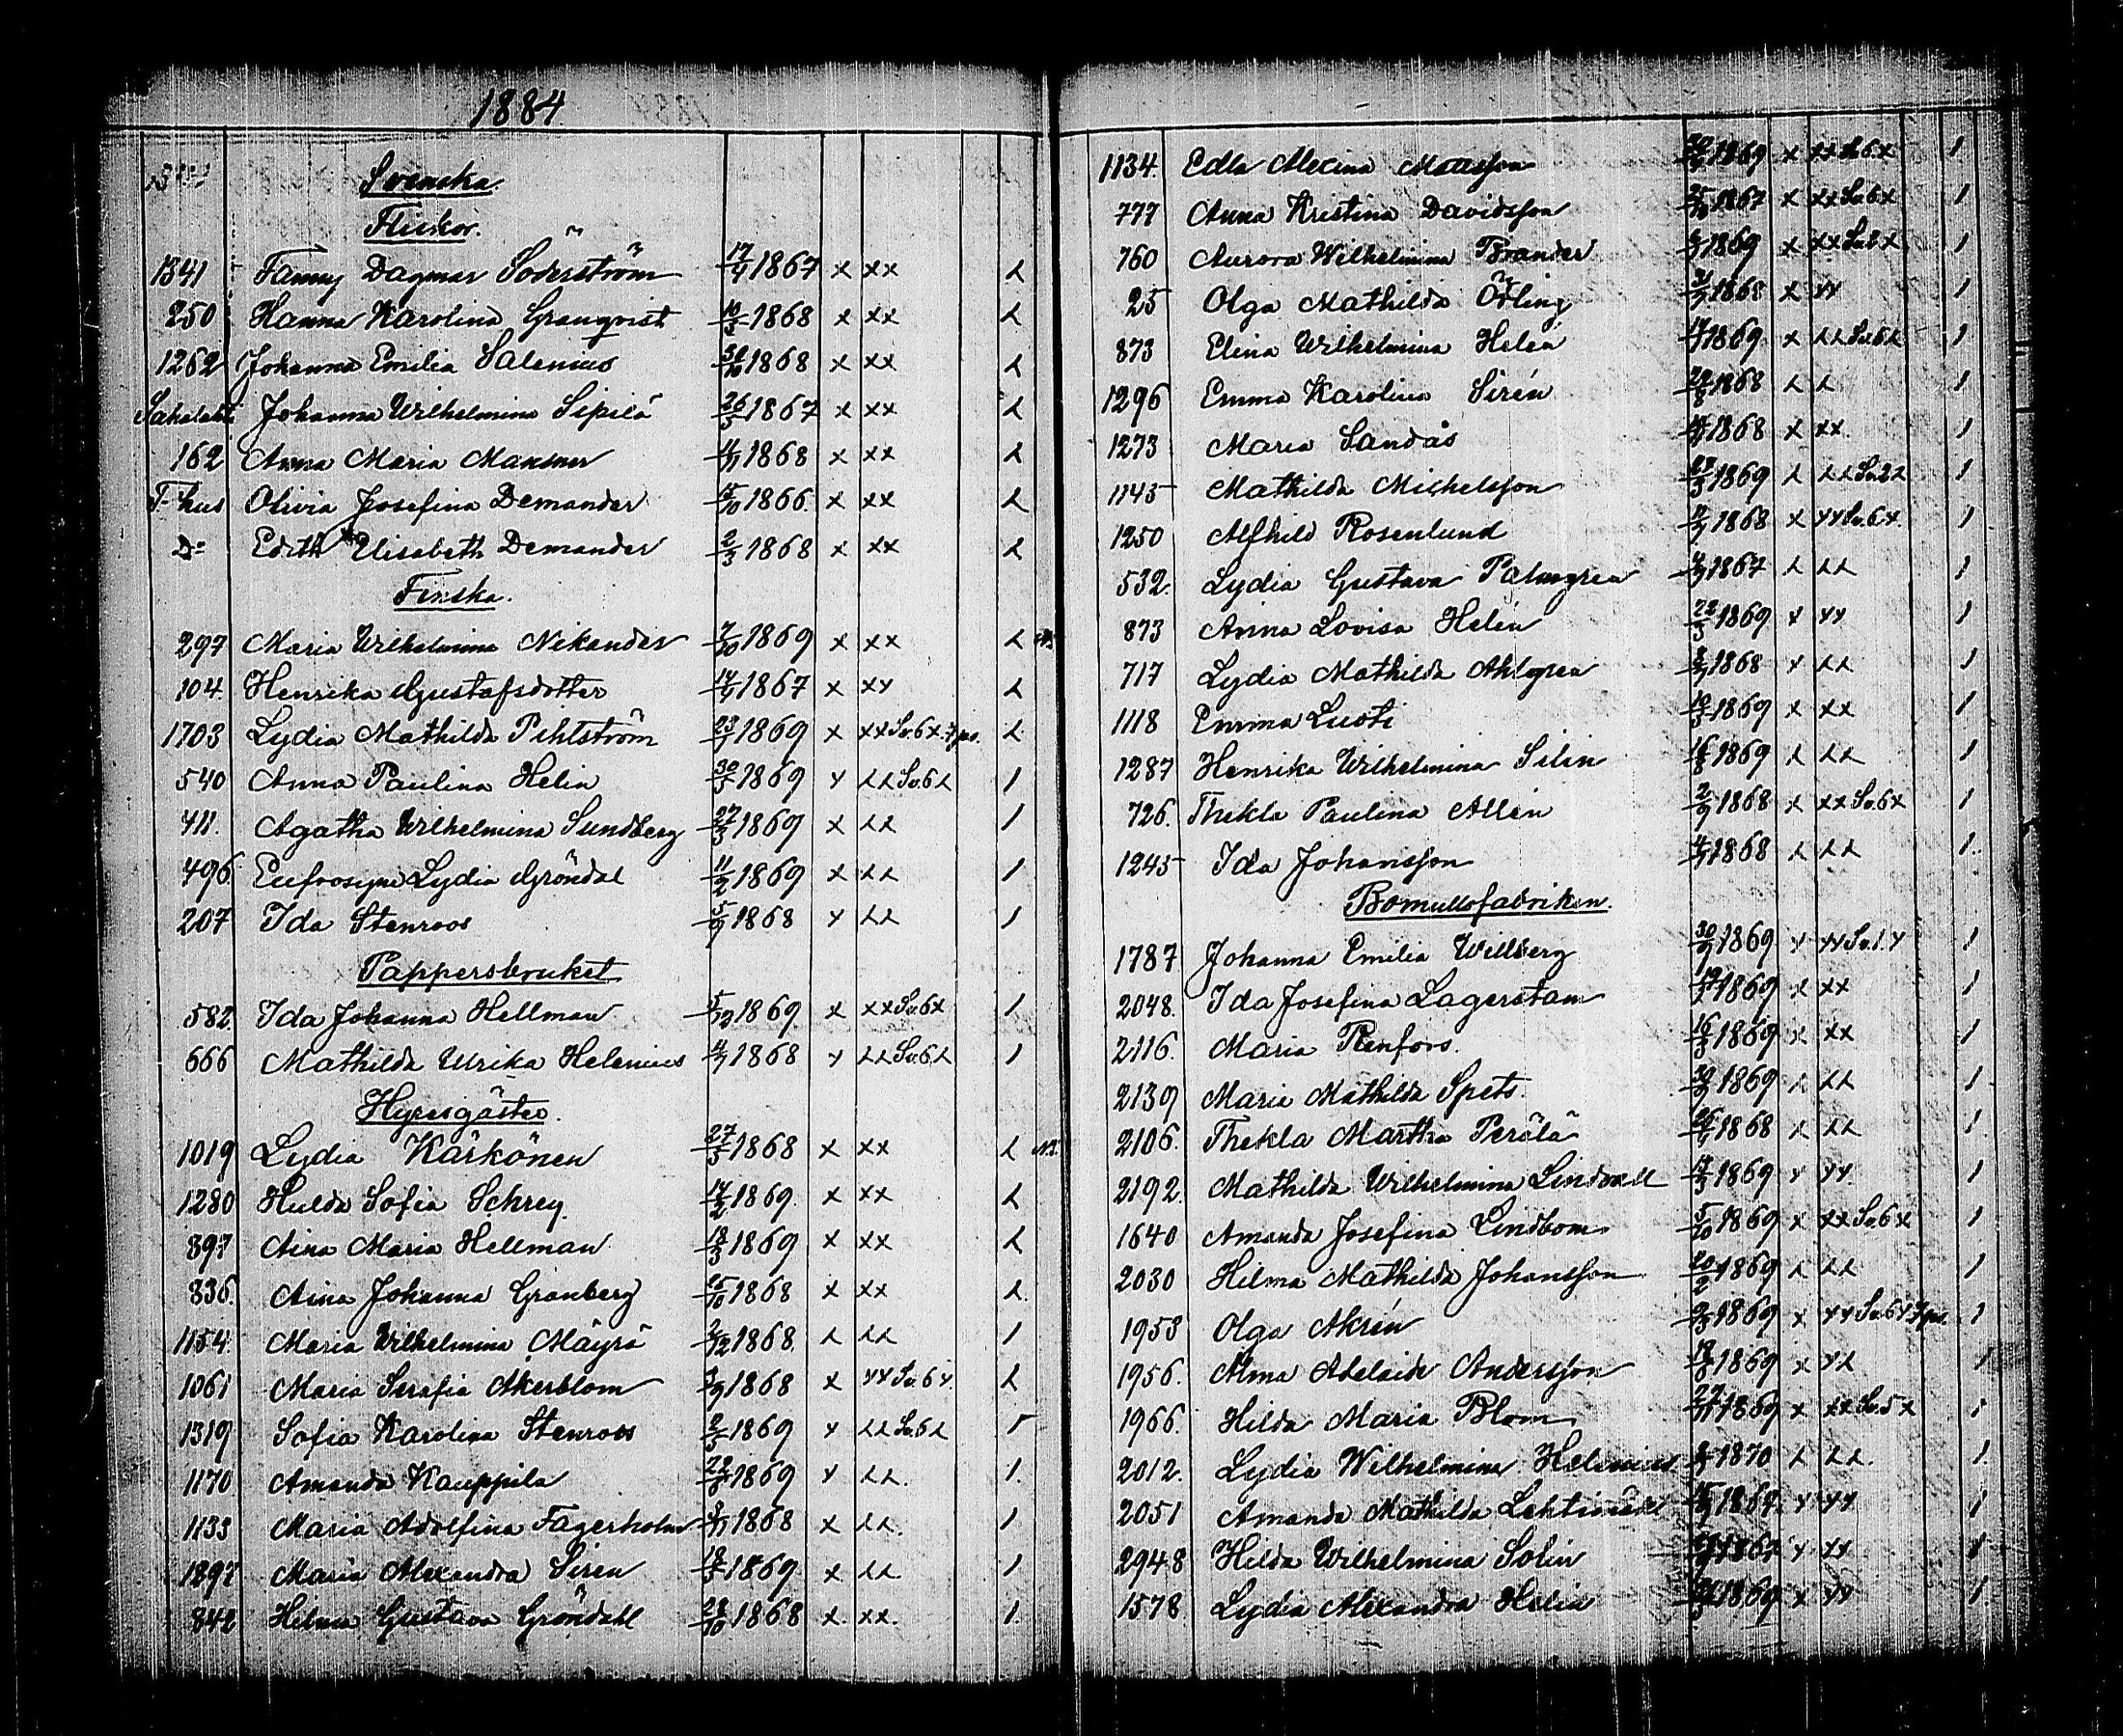 1884
Svenska
Flickor.
1341 Fanny Dagmar Söderström 17/4 1867 x xx 2
250 Hanna Karolina Granqvist 16/3 1868 x xx 2
1262 Johanna Emilia Salenius 31/10 1868 x xx 2
Johanna Wilhelmina Sipilä 26/5 1867 x xx 2
162 Anna Maria 1868 x xx 2
F-hus Olivia Josefina Demander 15/10 1866. x xx 2
Do Edith Elisabeth Demander 2/3 1868 x xx 2
Finska.
297 Maria Wilhelmina Nikander 7/10 1869 x xx 2
104. Henrika Gustafsdotter 1867 x xx 2
1703 Lydia Mathilda Pihlström 1869 x xx Sv.6x. 2
540 Anna Paulina Helin 30/5 1869 x xx Sv.6x 1
411. Agatha Wilhelmina Sundberg 27/3 1869 x xx 1
496 Eufrosyne Lydia Gröndal 11/2 1869 x xx 1
207 Ida Stenroos 5/9 1868 x xx 1
Pappersbruket
582 Ida Johanna Hellman 5/12 1869 x xx Sv.6x 1
666 Mathilda Ulrika Helenius 1868 x xx Sv.6x 1
Hyresgäster.
1019 Lydia Kärkönen 27/3 1868 x xx 2
1280 Hulda Sofia Schrey 1869. x xx 2
897 Aina Maria Hellman 18/3 1869 x xx 2
836. Aina Johanna Granberg 15/10 1868 x xx 2.
1154. Maria Wilhelmina Mäyrä 1868. x xx 1
1061 Maria Serafia Åkerblom 1868 x xx Sv.6x. 2
1319 Sofia Karolina Stenroos 1869 x xx Sv.6x 1
1170 Amanda Kauppila 1869 x xx. 1.
1133 Maria Adolfina Fagerholm 1868 x xx. 1
1897 Maria Alexandra Siren 1869 x xx 1
842 Hilma Gustava Gröndahl 28/10 1868 x. xx. 1.
1134. Edla Alexina Mattsson 1869 x xx Sv.6x 1
777 Anna Kristina Davidsson 25/10 1867 x xx Sv.6x 1
760 Aurora Wilhelmina Brander 1869 x xx Sv.2x 1
25 Olga Mathilda Ödling 1868 x xx 1
873 Elina Wilhelmina Helén 1869 x xx Sv.6x 1
1296 Emma Karolina Sirén 1868 x x 1
1273 Maria Sandås 1868 x xx. 1
1145 Mathilda Michelsson 1869 x xx Sv.2x 1
1250 Alfhild Rosenlund 1868 x xx Sv.6x. 1
532. Lydia Gustava Palmgren 1867 x xx 1
873 Anna Lovisa Helén 22/3 1869 x xx 1
717 Lydia Mathilda Ahlgren 1868 x xx 1
1118 Emma Luoti 1869 x xx 1
1287 Henrika Wilhelmina Silin 16/8 1869 x xx 1
726. Thekla Paulina Allén 2/9 1868 x xx Sv.6x 1
1245 Ida Johansson 1868 x xx 1.
Bomullsfabriken.
1787 Johanna Emilia Willberg 30/9 1869 x xx Sv.1.x 1
2048. Ida Josefina Lagerstam 1869 x xx 1
2116. Maria Renfors. 16/3 1869 x xx 1
2139 Maria Mathilda Spets. 30/9 1869 x xx 1
2106. Thekla Martha Perälä 1868 x xx 1.
2192. Mathilda Wilhelmina Lindvall 1869 x xx. 1
1640 Amanda Josefina Lindbom 5/10 1869 x xx Sv.6x 1
2030 Hilma Mathilda Johansson 20/2 1869 x xx 1
1953 Olga Akrén 1869 x xx Sv.6x 1
1956. Alma Adelaide Andersson 1869 x xx 1
1966. Hilda Maria Blom 27/11 1869 x xx Sv.5x 1
2012. Lydia Wilhelmina Helenius 1870 x xx. 1
2051 Amanda Mathilda 1869. x xx 1
2948 Hilda Wilhelmina Solin 1867 x xx 1
1578 Lydia Alexandra Helin 1869 x xx 1